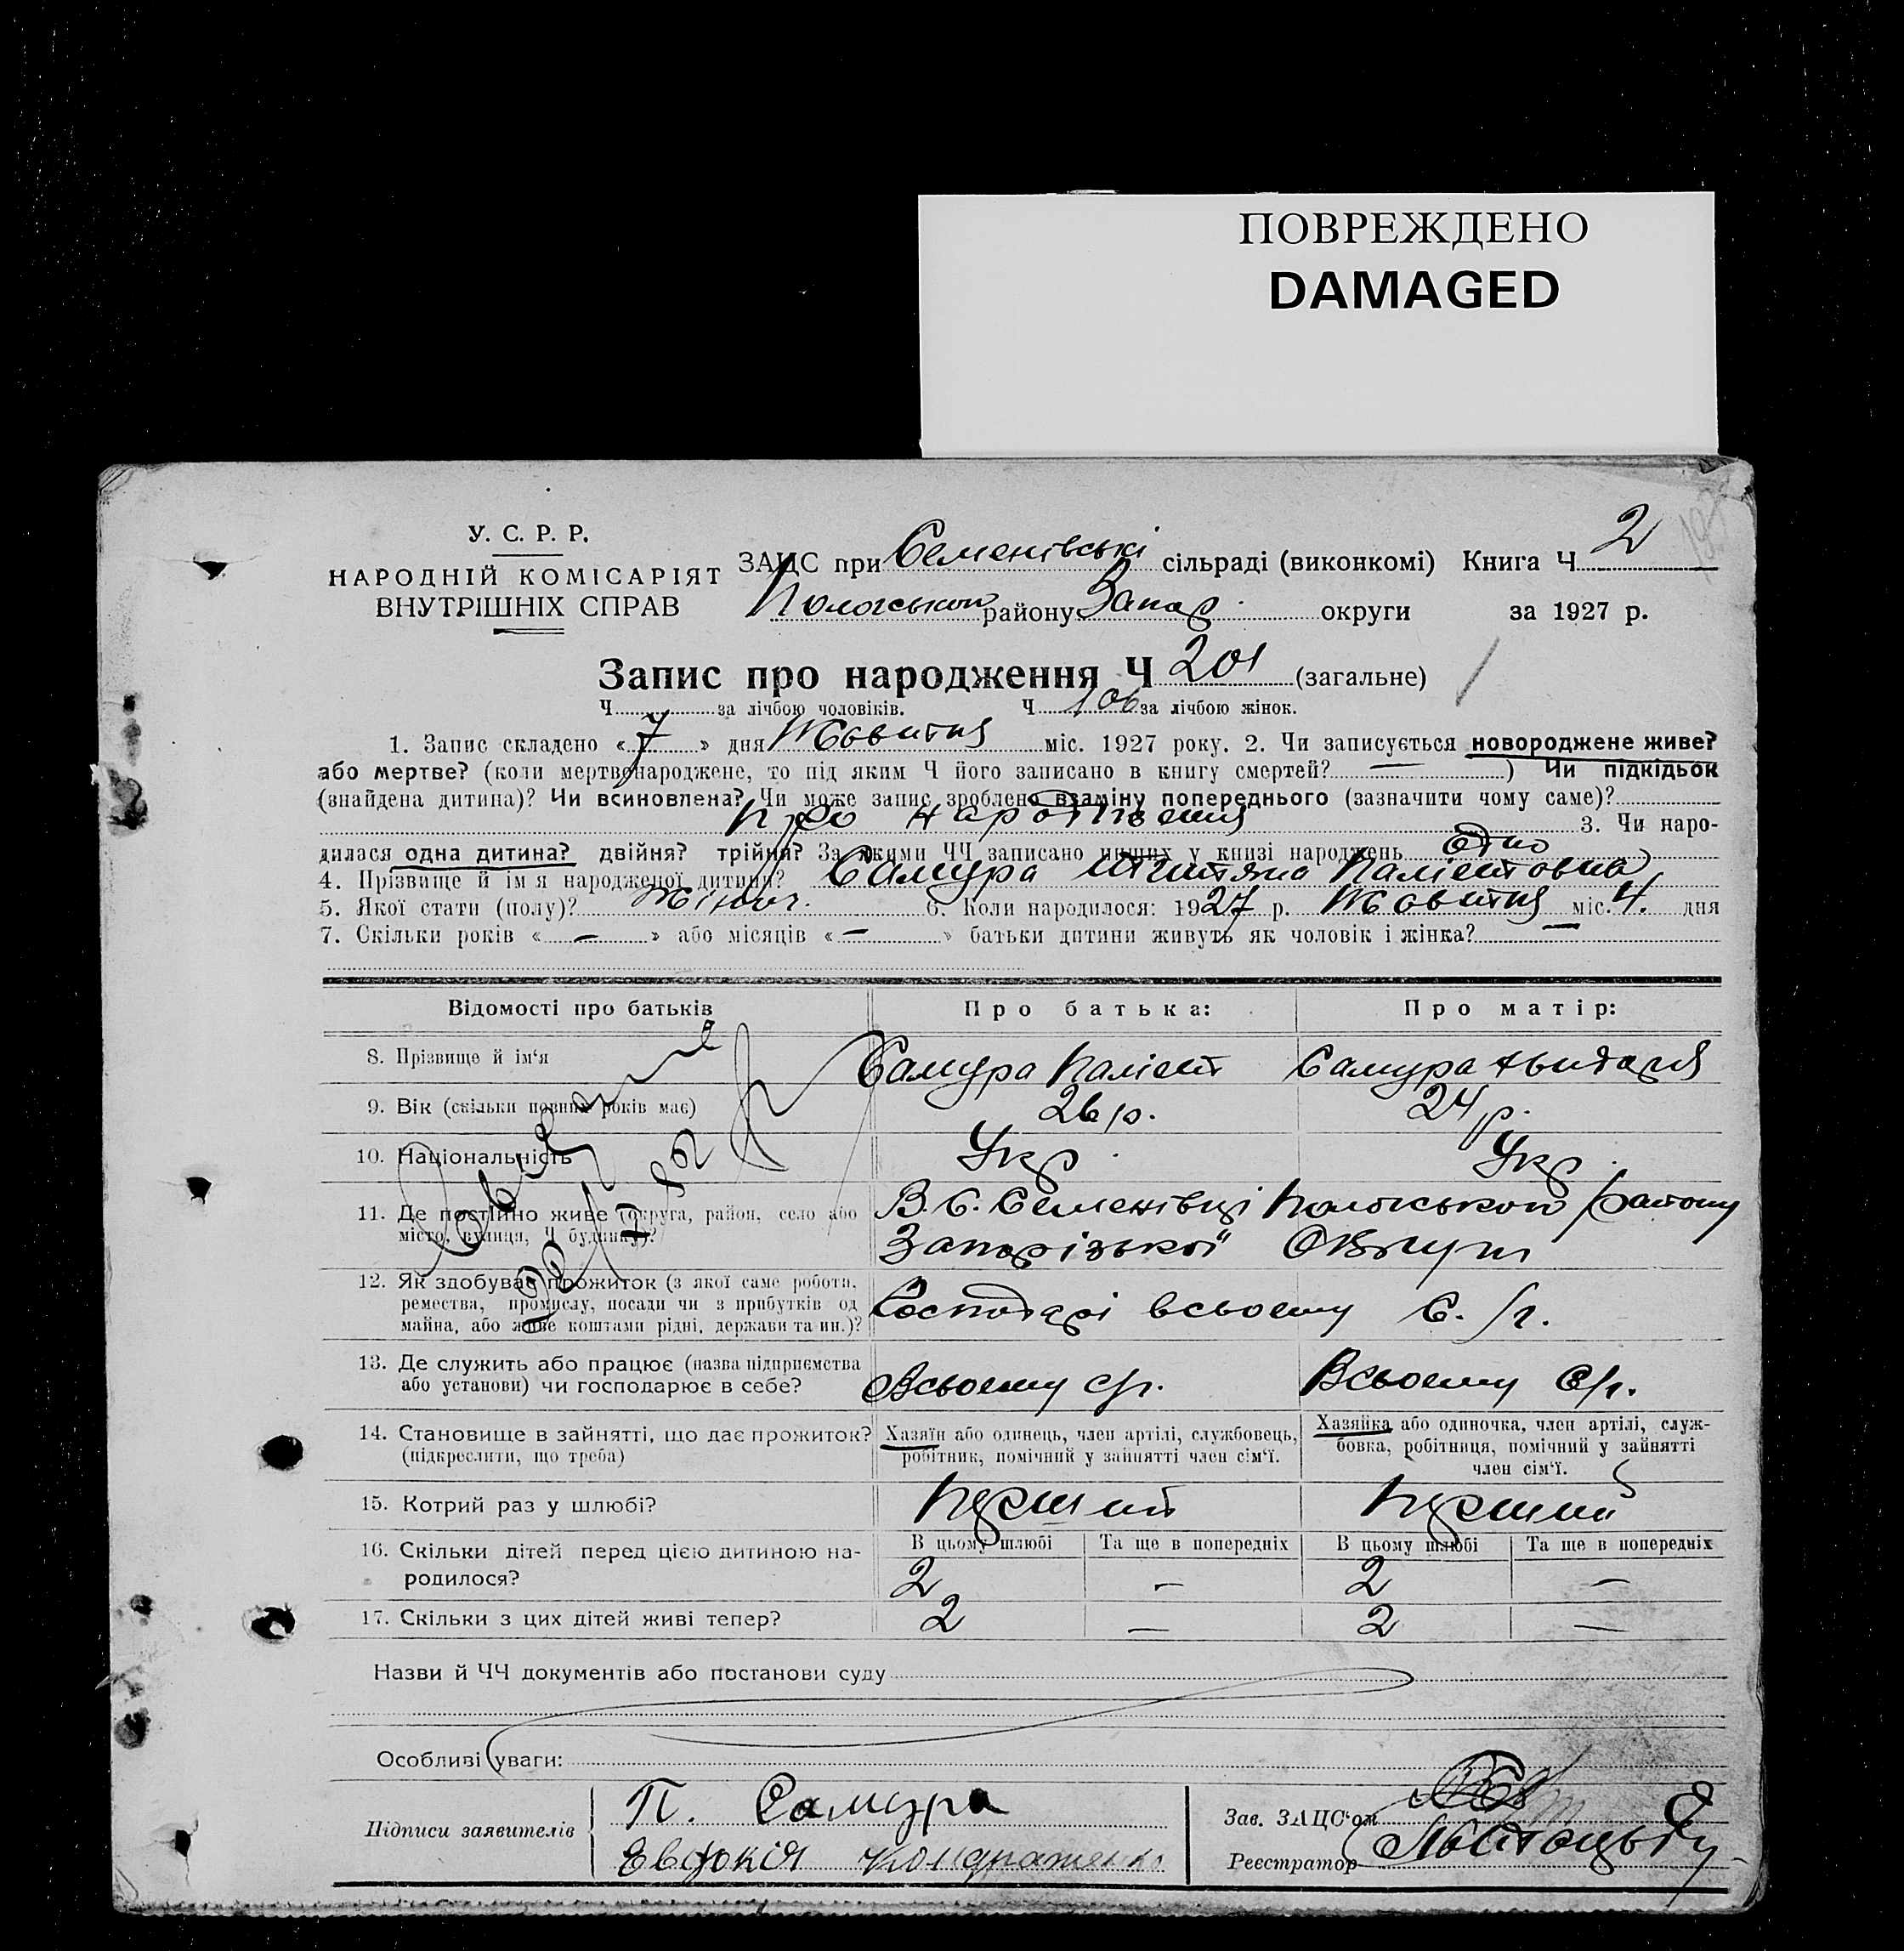 ПОВРЕЖДЕНО
DAMAGED
У. С. Р. Р.
НАРОДНІЙ КОМІСАРІЯТ
ВНУТРІШНІХ СПРАВ
ЗАЦС при Семенівські сільраді (виконкомі) Книга Ч 2
Пологського району Запор. округи за 1927 р.
Запис про народження Ч 201 (загальне)
Ч за лічбою чоловіків. Ч 106 за лічбою жінок.
1. Запис складено « 7 » дня Жовтня міс. 1927 року. 2. Чи записується новороджене живе?
або мертве? (коли мертвонароджене, то під яким Ч його записано в книгу смертей? — ) Чи підкідьок
(знайдена дитина)? Чи всиновлена? Чи може запис зроблено взаміну попереднього (зазначити чому саме)?
про народження 3. Чи наро-
дилася одна дитина? двійня? трійня? За якими ЧЧ записано инших у книзі народжень одно
4. Прізвище й ім я народженої дитини? Самура
5. Якої стати (полу)? Жіноч. 6. Коли народилося: 1927 р. Жовтня міс. 4. дня
7. Скільки років « — » або місяців « — » батьки дитини живуть як чоловік і жінка? —
Відомості про батьків Про батька: Про матір:
8. Прізвище й ім‘я Самура Самура
9. Вік (скільки повних років має) 26 р. 24 р.
10. Національність Укр. Укр.
11. Де постійно живе (округа, район, село або В. С. Семенівці Пологського району
місто, вулиця, Ч будинку)? Запорізької Округи
12. Як здобуває прожиток (з якої саме роботи,
ремества, промислу, посади чи з прибутків од Господарі всьому С. /г.
майна, або живе коштами рідні, держави та ин.)?
13. Де служить або працює (назва підприємства
або установи) чи господарює в себе? Всьоему с/г. Всьоему с/г.
14. Становище в зайнятті, що дає прожиток? Хазяїн або одинець, член артілі, службовець, Хазяйка або одиночка, член артілі, служ-
(підкреслити, що треба) робітник, помічний у зайнятті член сім‘ї. бовка, робітниця, помічний у зайнятті
член сім‘ї.
15. Котрий раз у шлюбі? перший перший
16. Скільки дітей перед цією дитиною на- В цьому шлюбі Та ще в попередніх В цьому шлюбі Та ще в попередніх
родилося? 2 — 2 —
17. Скільки з цих дітей живі тепер? 2 — 2 —
Назви й ЧЧ документів або постанови суду
Особливі уваги:
Підписи заявителів П. Самура
Евфокія Кондратенко
Зав. ЗАЦС‘ом
Реєстратор